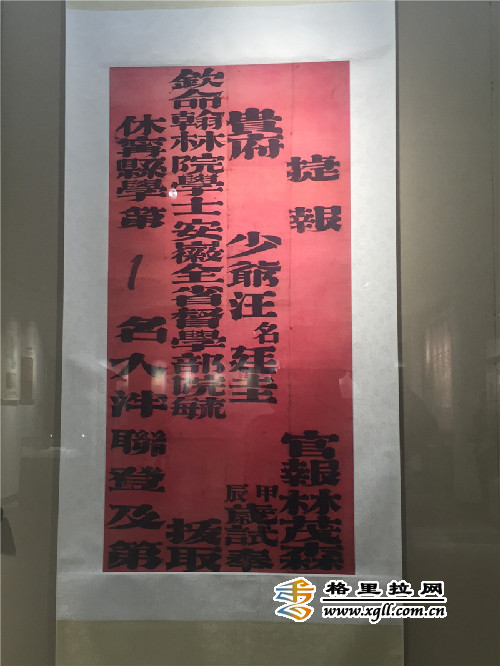 捷報 官報林茂森
貴府 少爺汪名廷圭 甲辰歲試奉
欽命翰林院學士安徽全省督學部院毓 拔取
休寧縣學第 1 名入泮聯登及第
格里拉网
www.xgll.com.cn